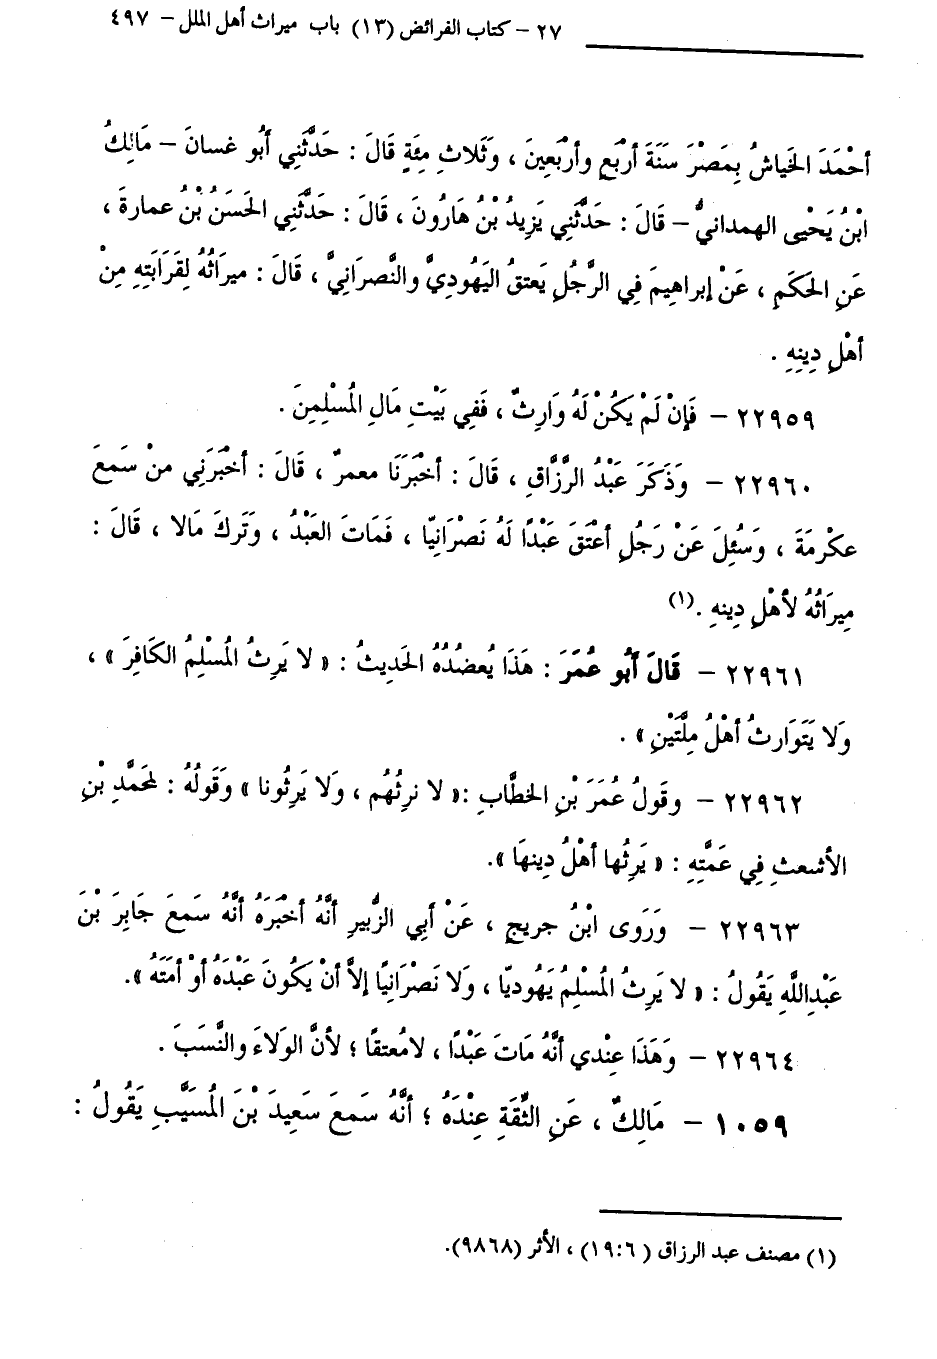 ٢٧ – كتاب الفرائض (١٣) باب ميراث أهل الملل – ٤٩٧
أحْمَدَ الخَياشُ بِمَصْرَ سَنَةَ أرْبَعٍ وأرْبَعِينَ ، وَثَلاثِ مِئَةٍ قَالَ : حَدَّثَنِي أَبُو غسانَ – مَالِكُ
ابْنُ يَحْيى الهمدانيُّ – قَالَ : حَدَّثَنِي يَزِيدُ بْنُ هَارُونَ ، قَالَ : حَدَّثَنِي الحَسَنُ بْنُ عمارةَ ،
عَنِ الحَكَمِ ، عَنْ إبراهِيمَ فِي الرَّجُلِ يَعتقُ اليَهُودِيَّ والنَّصرَانِيَّ ، قَالَ : ميرَاثُهُ لِقَرَابَتِهِ مِنْ
أهْلِ دِينِهِ .
٢٢٩٥٩ – فَإنْ لَمْ يَكُنْ لَهُ وَارِثٌ ، فَفِي بَيْتِ مَالِ المُسْلِمِنَ .
٢٢٩٦٠ – وَذَكَرَ عَبْدُ الرَّزَّاقِ ، قَالَ : أخْبَرَنَا معمرٌ ، قَالَ : أخْبَرَنِي منْ سَمعَ
عكْرمَةَ ، وَسُئِلَ عَنْ رَجُلٍ أعْتَقَ عَبْدًا لَهُ نَصْرَانِيّا ، فَمَاتَ العَبْدُ ، وَتَركَ مَالا ، قَالَ :
مِيرَاثُهُ لأهْلِ دِينهِ .(١)
٢٢٩٦١ – قَالَ أَبُو عُمَرَ : هَذَا يُعضُدُهُ الحَديثُ : « لا يَرِثُ المُسْلِمُ الكَافِرَ » ،
وَلا يَتَوَارثُ أهْلُ مِلَّتَيْنِ » .
٢٢٩٦٢ – وقَولُ عُمَرَ بْنِ الخطَّابِ :« لا نرِثُهُم ، وَلا يَرِثُونا » وَقَولُهُ : لمحَمَّدِ بْنِ
الأشعثِ فِي عَمَّتِهِ : « يَرِثُها أهْلُ دِينهَا ».
٢٢٩٦٣ – وَرَوى ابْنُ جريجٍ ، عَنْ أَبِي الزُّبيرِ أنَّهُ أخْبَرَهُ أنَّهُ سَمعَ جَابِرَ بْنَ
عَبْدِاللَّهِ يَقُولُ : « لا يَرِثُ المُسْلِمُ يَهُوديّا ، وَلا نَصْرَانِيًا إلاَّ أنْ يَكُونَ عَبْدَهُ أوْ أمَتَهُ ».
٢٢٩٦٤ – وَهَذَا عنْدي أنَّهُ مَاتَ عَبْدًا ، لامُعتقًا ؛ لأنَّ الوَلاءَ والنَّسَبَ .
١٠٥٩ – مَالِكٌ ، عَنِ الثِّقَةِ عِنْدَهُ ؛ أنَّهُ سَمعَ سَعيدَ بْنَ المُسَيَّبِ يَقُولُ :
(١) مصنف عبد الرزاق ( ١٩:٦) ، الأثر (٩٨٦٨).